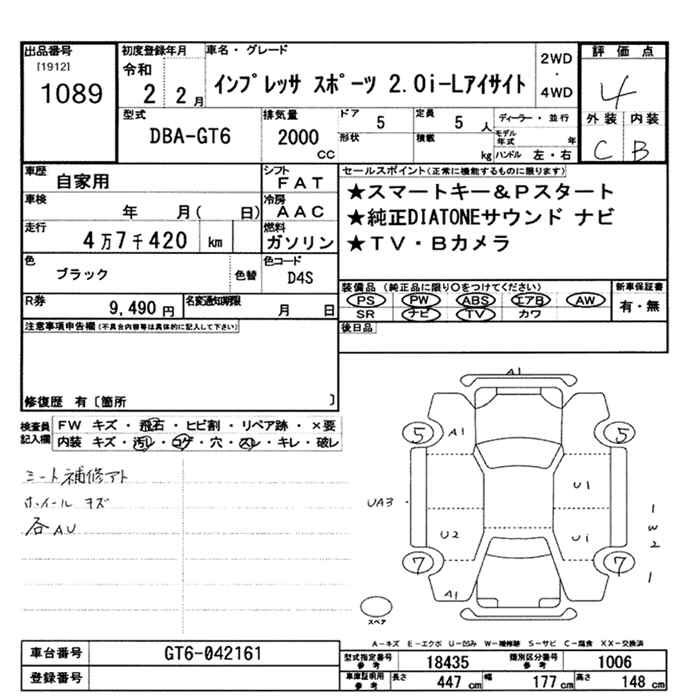 出品番号 初度登録年月 車名・グレード 2WD・4WD 評価点
[1912] 1089 令和 2 2月 インプレッサ スポーツ 2.0i-Lアイサイト 4
外装 内装
C B
型式 排気量 ドア 5 定員 5人 ディーラー・並行
DBA-GT6 2000cc 形状 積載 kg モデル年式 年
ハンドル 左・右
車歴 自家用 シフト FAT
車検 年 月( 日) 冷房 AAC
走行 4万7千420 km 燃料 ガソリン
色 ブラック 色替 色コード D4S
R券 9,490円 名変通知期限 月 日
セールスポイント(正常に機能するものに限ります)
★スマートキー&Pスタート
★純正DIATONEサウンド ナビ
★TV・Bカメラ
装備品(純正品に限り○をつけてください) 新車保証書
PS PW ABS エアB AW 有・無
SR ナビ TV カワ
後日品
注意事項申告欄(不具合内容等は具体的に記入して下さい)
修復歴 有〔箇所 〕
検査員記入欄 FW キズ・飛石・ヒビ割・リペア跡・×要
内装 キズ・汚レ・コゲ・穴・スレ・キレ・破レ
シート補修アト
ホイール キズ
各AU
A1
5 A1 5
UA3 U1
U2 U1
1
W2
7 7 1
A1
スペア
A-キズ E-エクボ U-凹み W-補修跡 S-サビ C-腐食 XX-交換済
車台番号 GT6-042161
登録番号
型式指定番号 参考 18435 類別区分番号 参考 1006
車庫証明用 参考 長さ 447cm 幅 177cm 高さ 148cm